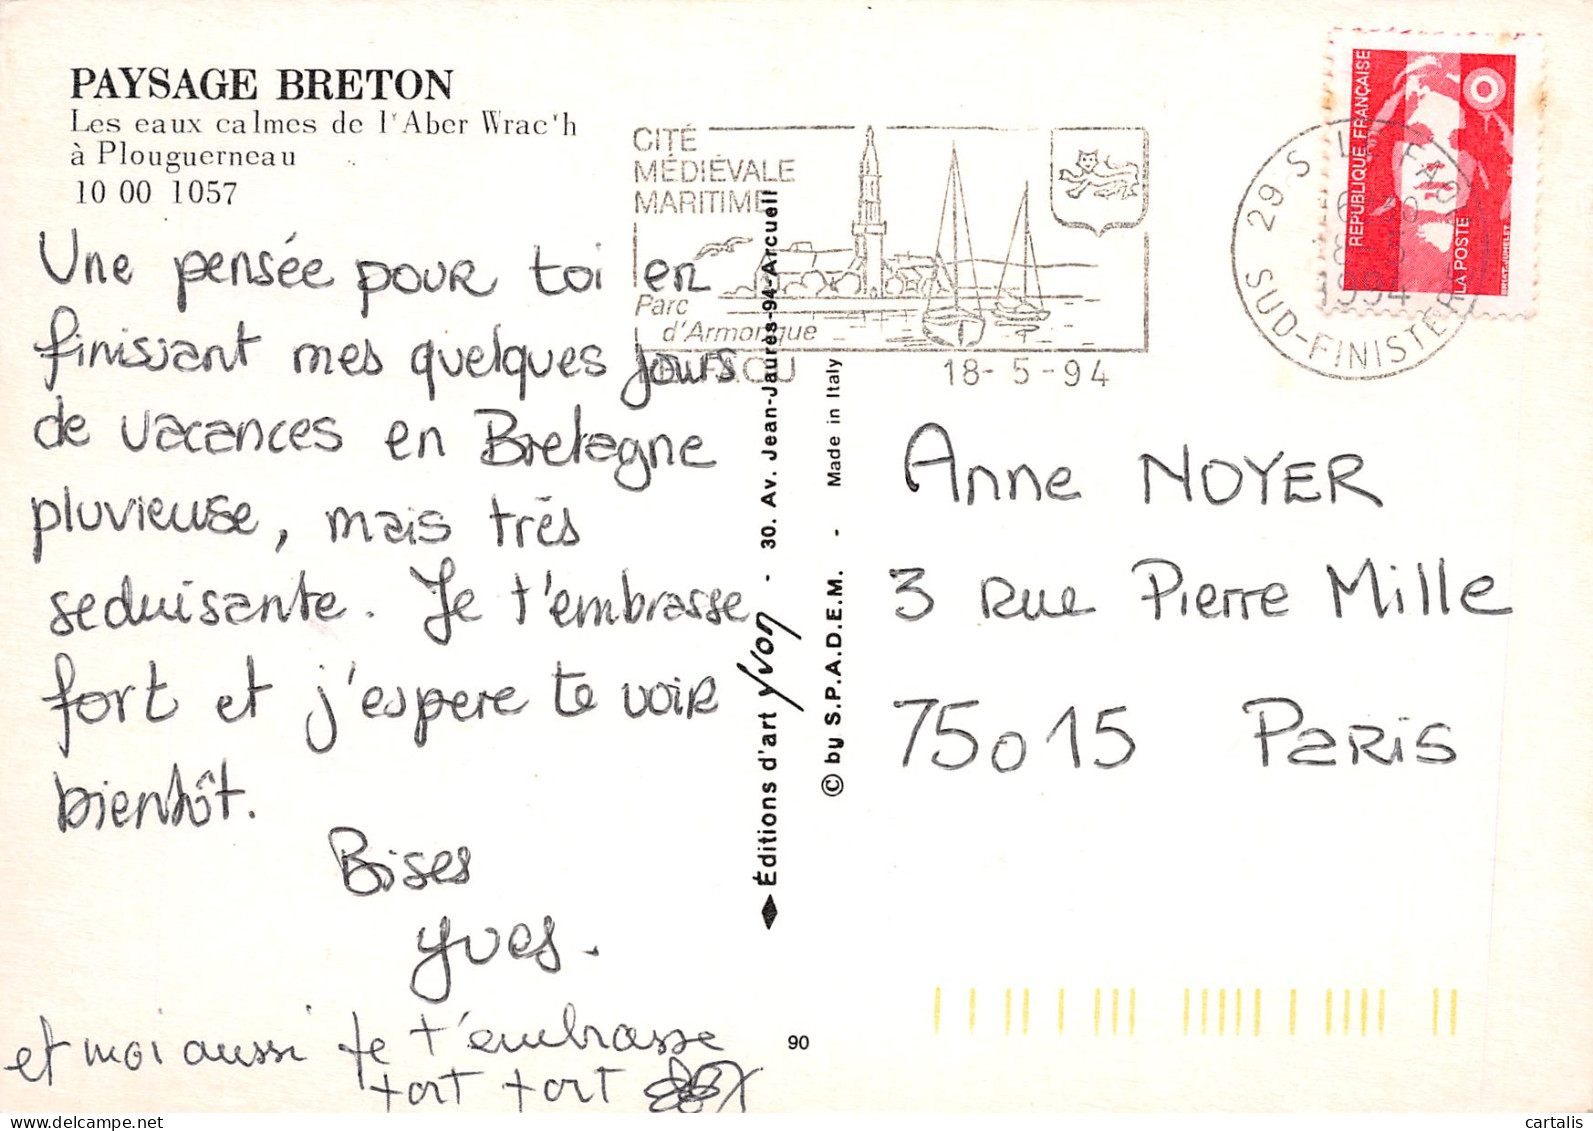 PAYSAGE BRETON
Les eaux calmes de l'Aber Wrac'h
à Plouguerneau
10 00 1057
Une pensée pour toi en
finissant mes quelques jours
de vacances en Bretagne
pluvieuse, mais très
seduisante. Je t'embrasse
fort et j'espere te voir
bientôt.
Bises
Yves.
et moi aussi je t'embrasse
fort fort
CITÉ
MÉDIÉVALE
MARITIME
Parc
d'Armorique
18-5-94
Éditions d'art Yvon - 30. Av. Jean-Jaurès-94-Arcueil
© by S.P.A.D.E.M. - Made in Italy
90
RÉPUBLIQUE FRANÇAISE
LA POSTE
29 S
1994
SUD-FINISTÈRE
Anne NOYER
3 Rue Pierre Mille
75015 Paris
© cartalis
www.delcampe.net